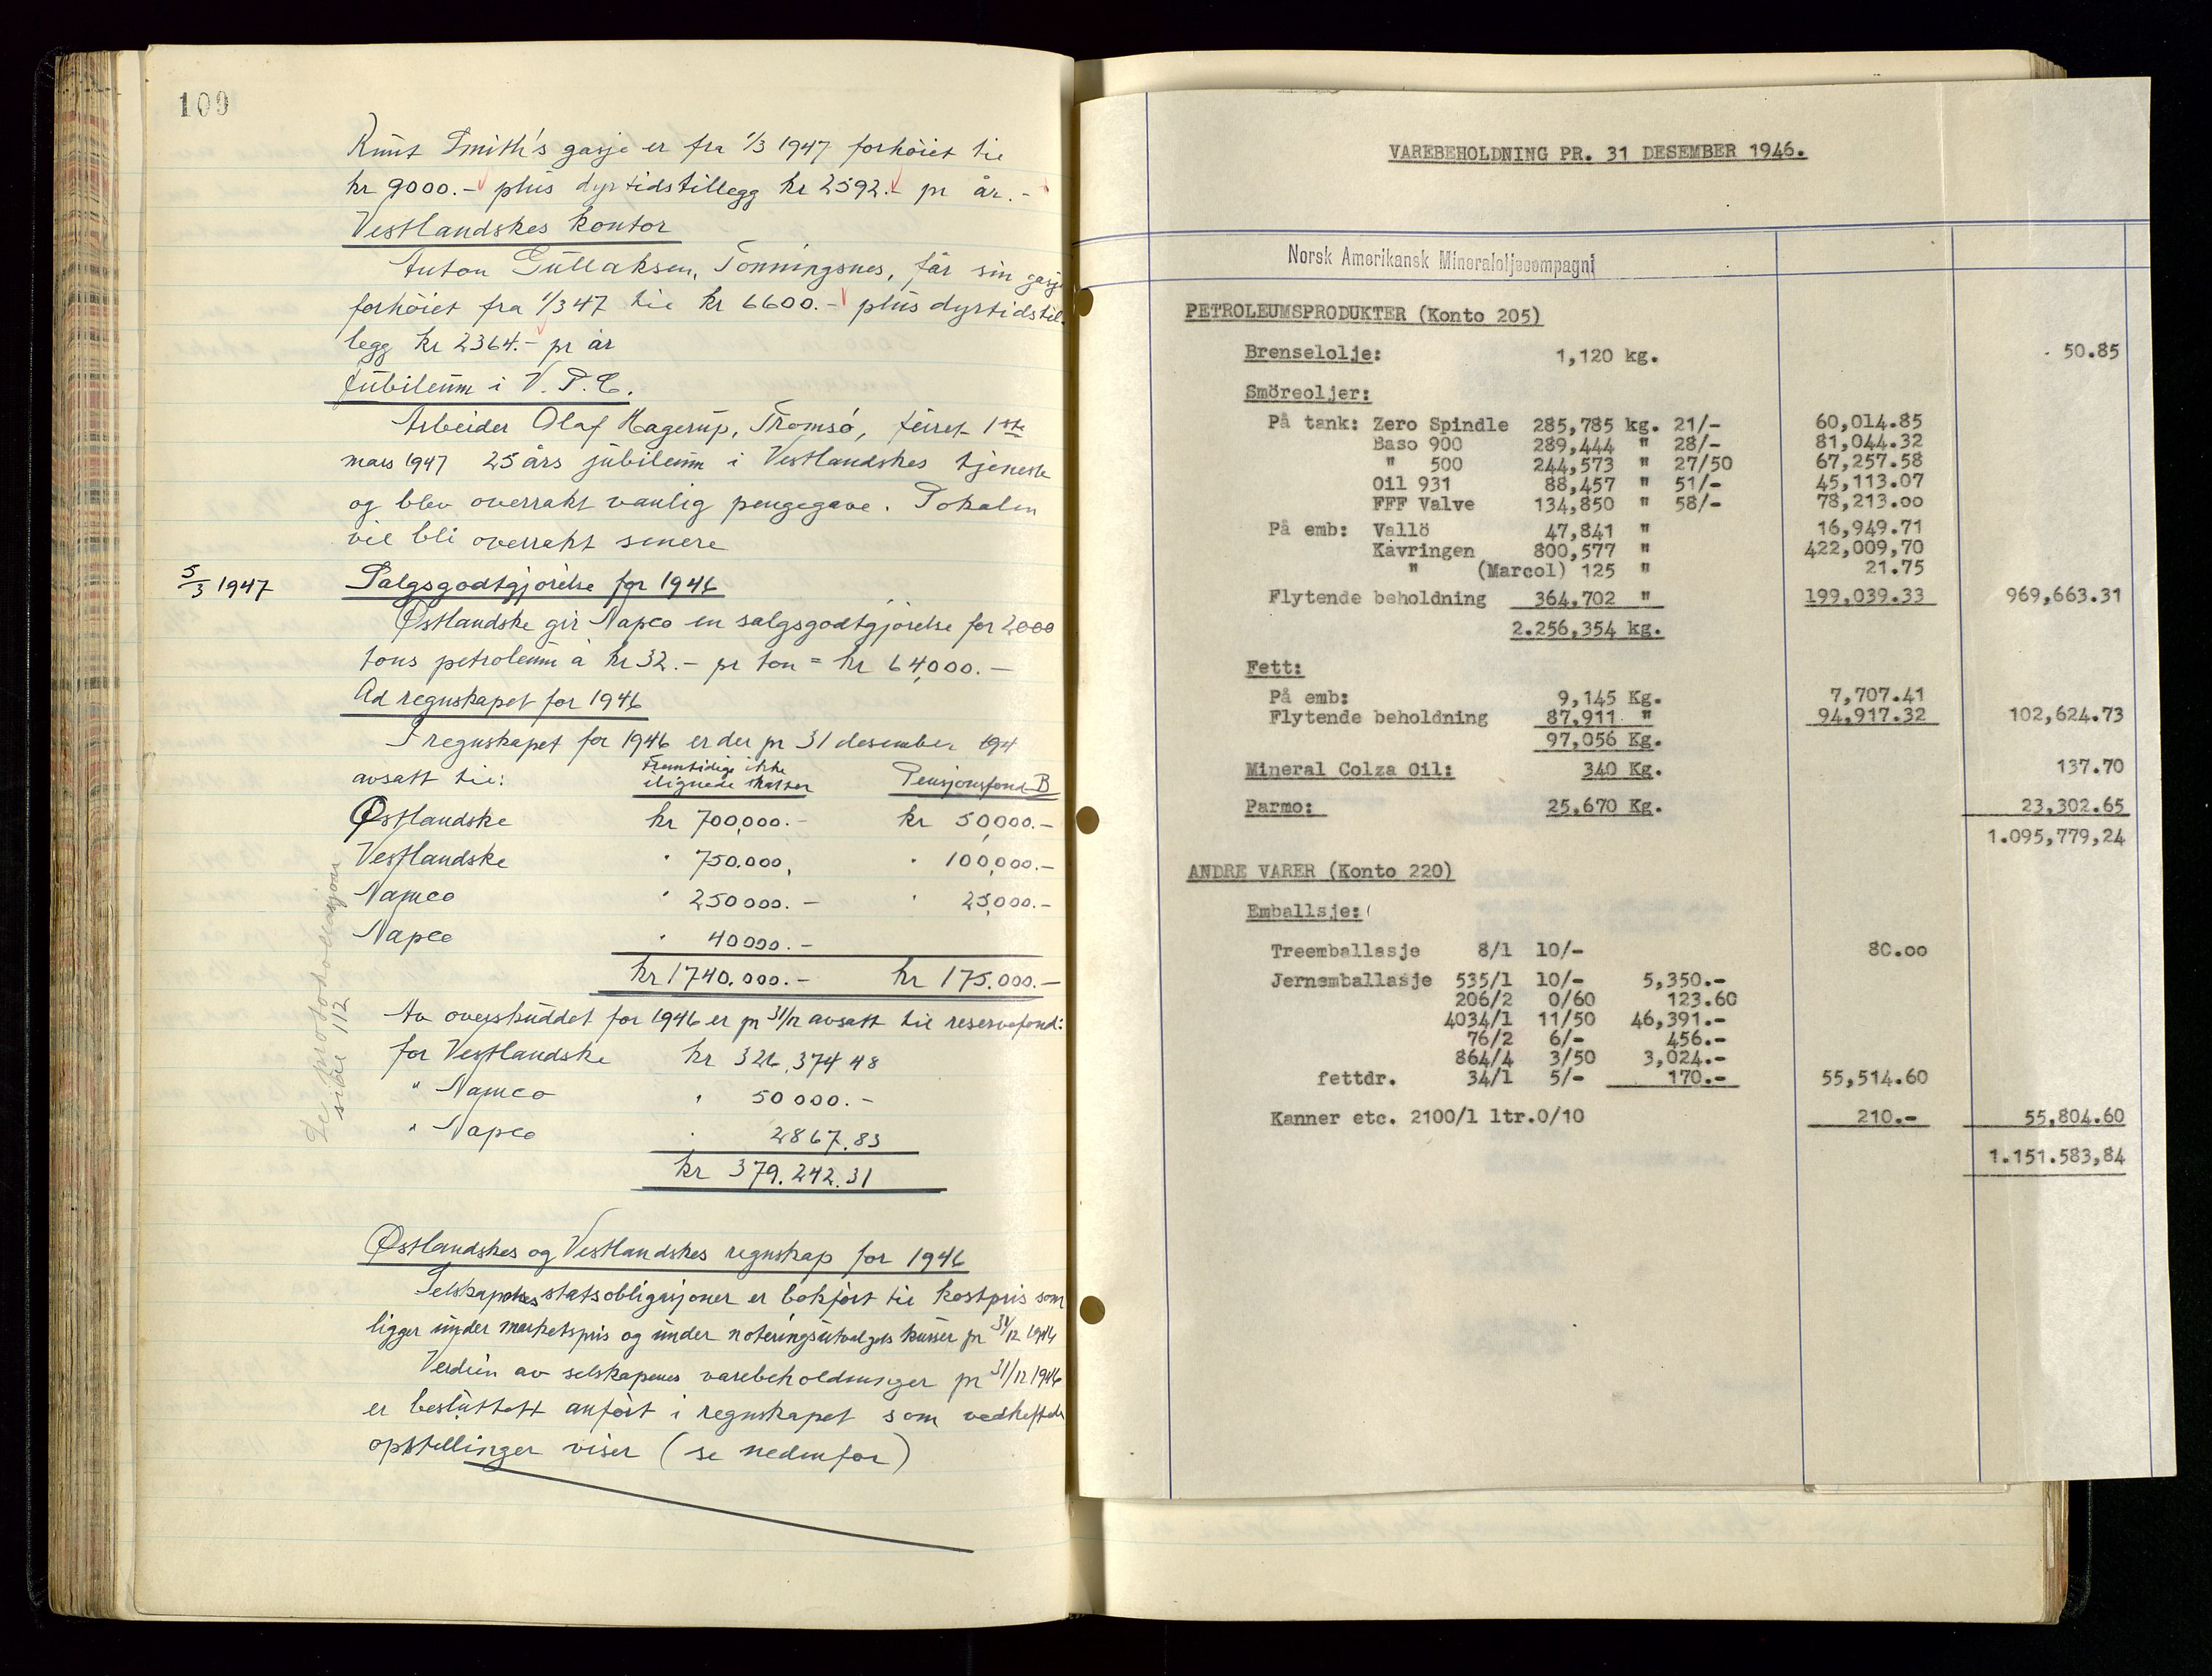 109
Knut Smith's gasje er fra 1/3 1947 forhöiet til
kr 9000.- plus dyrtidstillegg kr 2592.- pr år.-
Vestlandskes kontor
Anton Gullaksen, Tonningsnes, får sin gasje
forhöiet fra 1/3 47 til kr 6600.- plus dyrtidstil-
legg kr 2364.- pr år
Jubileum i V. P. C.
Arbeider Olaf Hagerup, Tromsö, feiret 1ste
mars 1947 25 års jubileum i Vestlandskes tjeneste
og blev overrakt vanlig pengegave. Pokalen
vil bli overrakt senere
5/3 1947 Salgsgodtgjörelse for 1946
Østlandske gir Napco en salgsgodtgjörelse for 2000
tons petroleum à kr 32.- pr ton = kr 64,000.-
Ad regnskapet for 1946
I regnskapet for 1946 er der pr 31 desember 194
avsatt til: Fremtidige ikke
utlignede skatter Pensjonsfond B
Østlandske kr 700,000.- kr 50,000.-
Vestlandske " 750.000, " 100,000.-
Namco " 250000.- " 25,000.-
Napco " 40000.-
kr 1740.000.- kr 175.000.-
Av overskuddet for 1946 er pr 31/12 avsatt til reservefond:
for Vestlandske kr 326,374 48
" Namco " 50000.-
" Napco " 2867.83
kr 379.242.31
Se protokollasjon
side 112
Østlandskes og Vestlandskes regnskap for 1946
Selskapenes statsobligasjoner er bokfört til kostpris som
ligger under markedspris og under noteringsutvalgets kurser pr 31/12 1946
Verdien av selskapenes varebeholdninger pr 31/12 1946
er besluttett anfört i regnskapet som vedheftede
opstillinger viser (se nedenfor)
VAREBEHOLDNING PR. 31 DESEMBER 1946.
Norsk Amerikansk Mineraloljecompagni
PETROLEUMSPRODUKTER (Konto 205)
Brenselolje: 1,120 kg. 50.85
Smöreoljer:
På tank: Zero Spindle 285,785 kg. 21/- 60,014.85
Baso 900 289,444 " 28/- 81,044.32
" 500 244,573 " 27/50 67,257.58
Oil 931 88,457 " 51/- 45,113.07
FFF Valve 134,850 " 58/- 78,213.00
På emb: Vallö 47,841 " 16,949.71
Kavringen 800,577 " 422,009,70
" (Marcol) 125 " 21.75
Flytende beholdning 364,702 " 199,039.33 969,663.31
2.256,354 kg.
Fett:
På emb: 9,145 Kg. 7,707.41
Flytende beholdning 87,911 " 94,917.32 102,624.73
97,056 Kg.
Mineral Colza Oil: 340 Kg. 137.70
Parmo: 25,670 Kg. 23,302.65
1.095,779,24
ANDRE VARER (Konto 220)
Emballsje:
Treemballasje 8/1 10/- 80.00
Jernemballasje 535/1 10/- 5,350.-
206/2 0/60 123.60
4034/1 11/50 46,391.-
76/2 6/- 456.-
864/4 3/50 3,024.-
fettdr. 34/1 5/- 170.- 55,514.60
Kanner etc. 2100/1 ltr.0/10 210.- 55,804.60
1.151.583,84